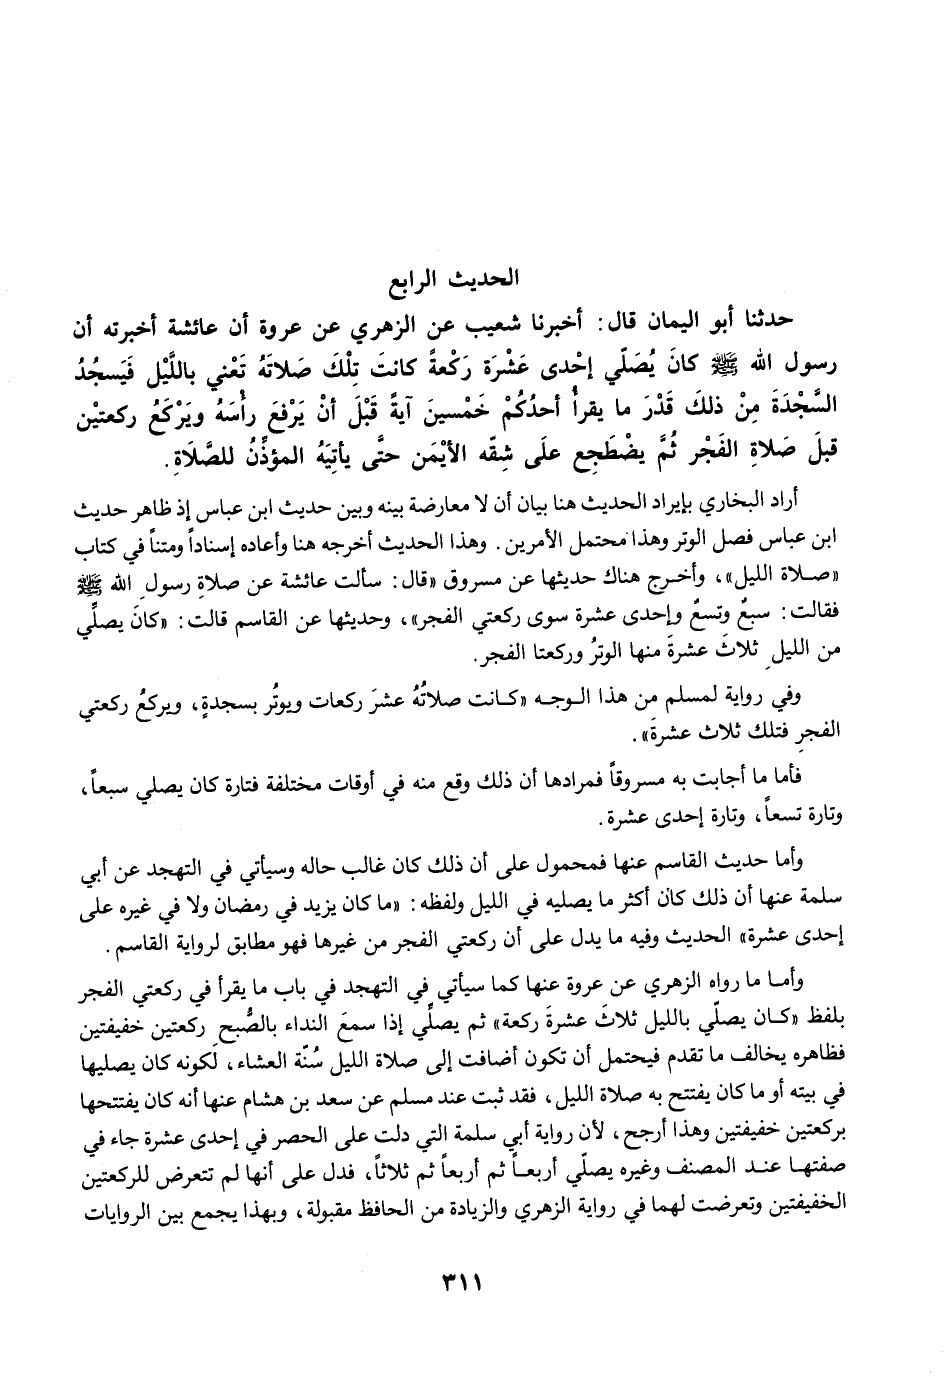 الحديث الرابع
حدثنا أبو اليمان قال: أخبرنا شعيب عن الزهري عن عروة أن عائشة أخبرته أن
رسول الله ﷺ كانَ يُصَلّي إحْدى عَشْرَة رَكْعةً كانتَ تِلْكَ صَلاتَهُ تَعْني باللَّيْل فَيَسجُدُ
السَّجْدَةَ مِنْ ذلكَ قَدْرَ ما يقرأُ أحدُكُمْ خَمْسينَ آيةً قَبْلَ أنْ يَرْفعَ رأْسَهُ ويَرْكَعُ ركعتيْن
قبلَ صَلاةِ الفَجْر ثُمَّ يضْطَجِع علَى شِقّه الأيْمَن حتَّى يأتيَهُ المؤذِّنُ للصَّلَاةِ.
أراد البخاري بإيراد الحديث هنا بيان أن لا معارضة بينه وبين حديث ابن عباس إذ ظاهر حديث
ابن عباس فصل الوتر وهذا محتمل الأمرين. وهذا الحديث أخرجه هنا وأعاده إسناداً ومتناً في كتاب
«صلاة الليل»، وأخرج هناك حديثها عن مسروق «قال: سألت عائشة عن صلاةِ رسولِ الله ﷺ
فقالت: سبعٌ وتسعٌ وإحدى عشرة سوى ركعتي الفجر»، وحديثها عن القاسم قالت: «كانَ يصلِّي
من الليلِ ثلاثَ عشرةَ منها الوترُ وركعتا الفجر.
وفي رواية لمسلم من هذا الوجه «كانت صلاتُهُ عشرَ ركعات ويوتُر بسجدةٍ، ويركعُ ركعتي
الفجرِ فتلك ثلاث عشرةَ».
فأما ما أجابت به مسروقاً فمرادها أن ذلك وقع منه في أوقات مختلفة فتارة كان يصلي سبعاً،
وتارة تسعاً، وتارة إحدى عشرة.
وأما حديث القاسم عنها فمحمول على أن ذلك كان غالب حاله وسيأتي في التهجد عن أبي
سلمة عنها أن ذلك كان أكثر ما يصليه في الليل ولفظه: «ما كان يزيد في رمضان ولا في غيره على
إحدى عشرة» الحديث وفيه ما يدل على أن ركعتي الفجر من غيرها فهو مطابق لرواية القاسم.
وأما ما رواه الزهري عن عروة عنها كما سيأتي في التهجد في باب ما يقرأ في ركعتي الفجر
بلفظ «كان يصلّي بالليل ثلاثَ عشرةَ ركعة» ثم يصلِّي إذا سمعَ النداء بالصُّبحِ ركعتين خفيفتين
فظاهره يخالف ما تقدم فيحتمل أن تكون أضافت إلى صلاة الليل سُنّة العشاء، لكونه كان يصليها
في بيته أو ما كان يفتتح به صلاة الليل، فقد ثبت عند مسلم عن سعد بن هشام عنها أنه كان يفتتحها
بركعتين خفيفتين وهذا أرجح، لأن رواية أبي سلمة التي دلت على الحصر في إحدى عشرة جاء في
صفتها عند المصنف وغيره يصلّي أربعاً ثم أربعاً ثم ثلاثاً، فدل على أنها لم تتعرض للركعتين
الخفيفتين وتعرضت لهما في رواية الزهري والزيادة من الحافظ مقبولة، وبهذا يجمع بين الروايات
٣١١